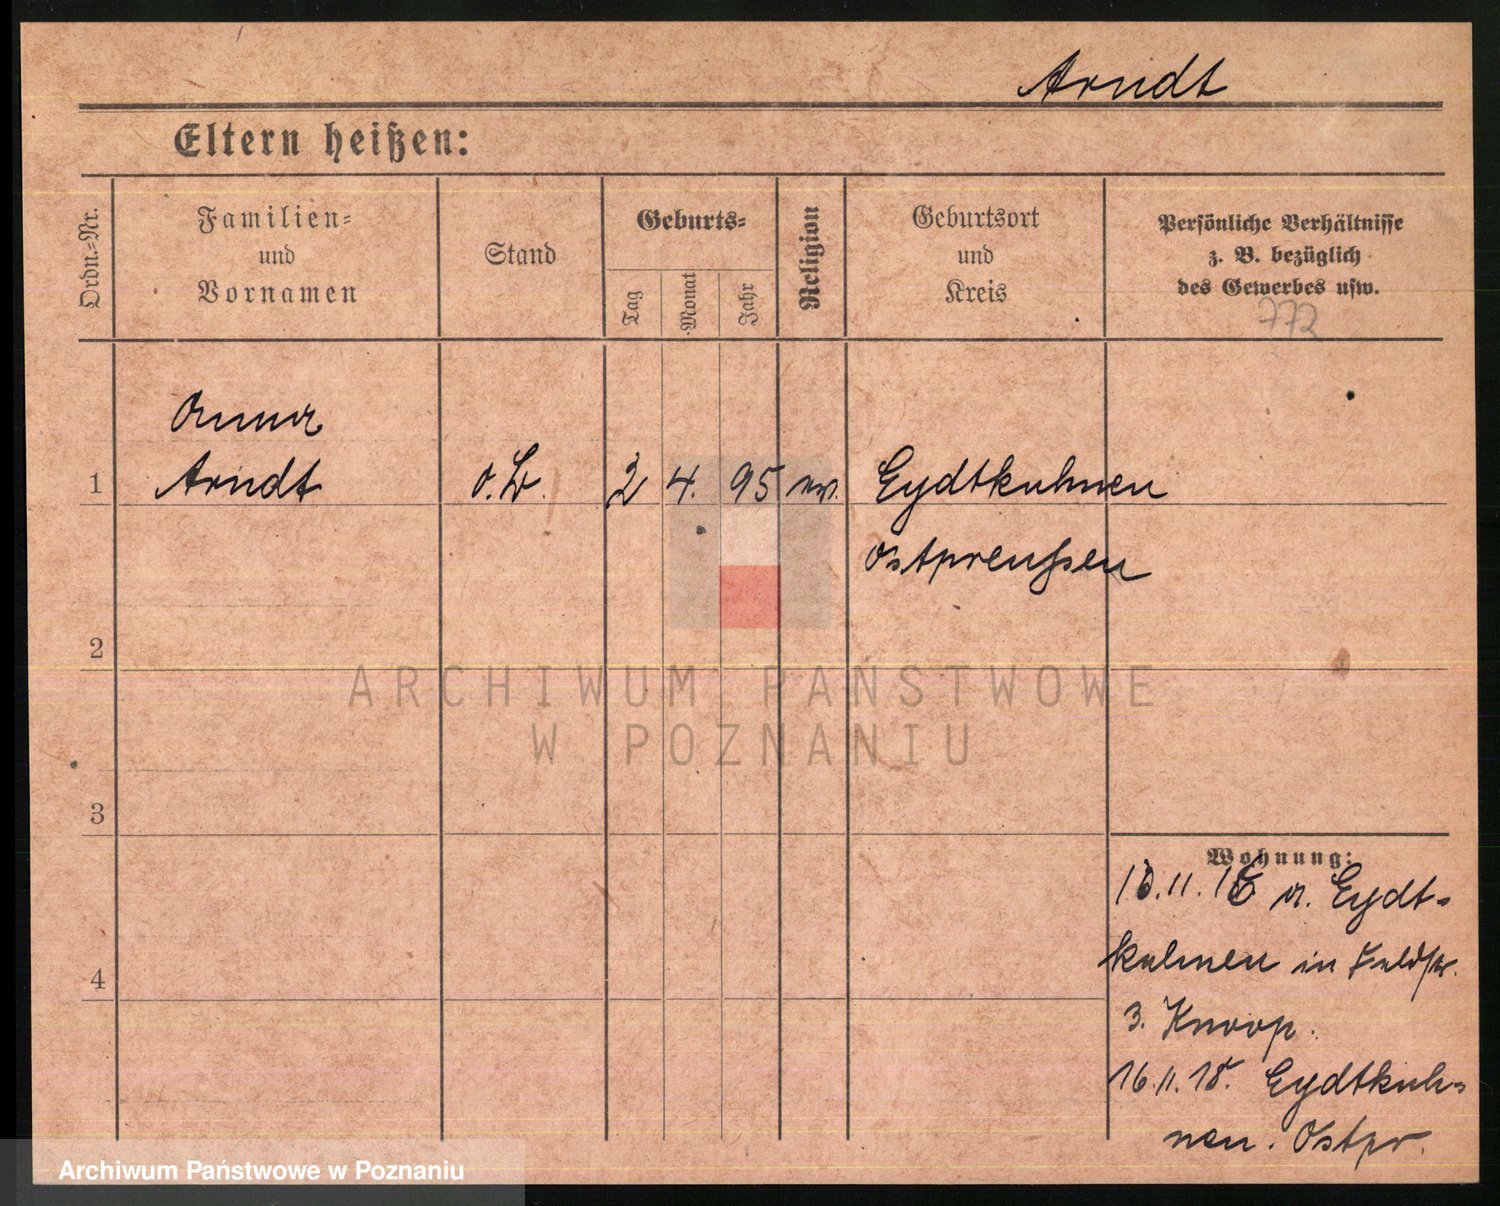 Arndt
Eltern heißen:
Ordn.-Nr.
Familien-
und
Vornamen
Stand
Geburts-
Tag
Monat
Jahr
Religion
Geburtsort
und
Kreis
Persönliche Verhältnisse
z. B. bezüglich
des Gewerbes usw.
772
Anna
1 Arndt o.B. 2 4. 95 ev. Eydtkuhnen
Ostpreußen
2
3
4
Wohnung:
.11. a. Eydt-
kuhnen in
3. Knoop.
16.11.18. Eydtkuh-
nen. Ostpr.
ARCHIWUM PAŃSTWOWE
W POZNANIU
Archiwum Państwowe w Poznaniu